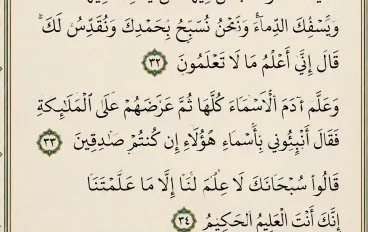 وَيَسْفِكُ الدِّمَآءَ وَنَحْنُ نُسَبِّحُ بِحَمْدِكَ وَنُقَدِّسُ لَكَ
قَالَ إِنِّي أَعْلَمُ مَا لَا تَعْلَمُونَ ٣٢
وَعَلَّمَ ءَادَمَ الْأَسْمَآءَ كُلَّهَا ثُمَّ عَرَضَهُمْ عَلَى الْمَلَـٰٓئِكَةِ
فَقَالَ أَنۢبِـُٔونِي بِأَسْمَآءِ هَـٰٓؤُلَآءِ إِن كُنتُمْ صَـٰدِقِينَ ٣٣
قَالُوا۟ سُبْحَانَكَ لَا عِلْمَ لَنَا إِلَّا مَا عَلَّمْتَنَا
إِنَّكَ أَنْتَ الْعَلِيمُ الْحَكِيمُ ٣٤